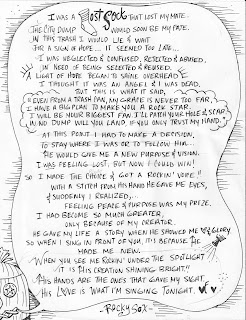 I WAS A Lost Sock THAT LOST MY MATE.
THE CITY DUMP WOULD SOON BE MY FATE.
IN THIS TRASH I WOULD LIE & WAIT
FOR A SIGN OF HOPE... IT SEEMED TOO LATE...
I WAS NEGLECTED & CONFUSED, REJECTED & ABUSED,
IN NEED OF BEING SELECTED & REUSED.
A LIGHT OF HOPE BEGAN TO SHINE OVERHEAD
I THOUGHT IT WAS AN ANGEL & I WAS DEAD.
BUT THIS IS WHAT IT SAID,
"EVEN FROM A TRASH CAN, MY GRACE IS NEVER TOO FAR.
I HAVE A BIG PLAN TO MAKE YOU A ROCK STAR.
I WILL BE YOUR BIGGEST FAN, I'LL PATCH YOUR HOLE & SCAR
IN NO DUMP WILL YOU LAND, IF YOU ONLY TRUST MY HAND.
AT THIS POINT I HAD TO MAKE A DECISION,
TO STAY WHERE I WAS OR TO FOLLOW HIM.
HE WOULD GIVE ME A NEW PURPOSE & VISION.
I WAS FEELING LOST, BUT NOW I COULD WIN!
SO I MADE THE CHOICE & GOT A ROCKIN' VOICE!
WITH A STITCH FROM HIS HAND HE GAVE ME EYES,
& SUDDENLY I REALIZED...
FEELING PEACE & PURPOSE WAS MY PRIZE.
I HAD BECOME SO MUCH GREATER,
ONLY BECAUSE OF MY CREATOR.
HE GAVE MY LIFE A STORY WHEN HE SHOWED ME HIS GLORY
SO WHEN I SING IN FRONT OF YOU, IT'S BECAUSE HE
MADE ME NEW.
WHEN YOU SEE ME ROCKIN' UNDER THE SPOTLIGHT
IT IS HIS CREATION SHINING BRIGHT!!
HIS HANDS ARE THE ONES THAT GAVE MY SIGHT
HIS LOVE IS WHAT I'M SINGING TONIGHT.
-ROCKY SOX-